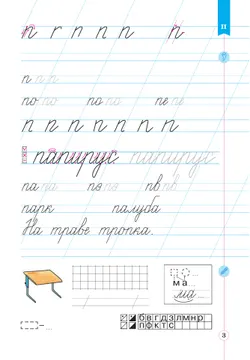 п г п п п п
П
п п п
по по по по пе пе
п п п п п п п п
папирус папирус
па па пе пе пв пв
парк палуба
На траве тропка.
ма ...
ма ...
б в г д з л м н р
п ф к т с
3